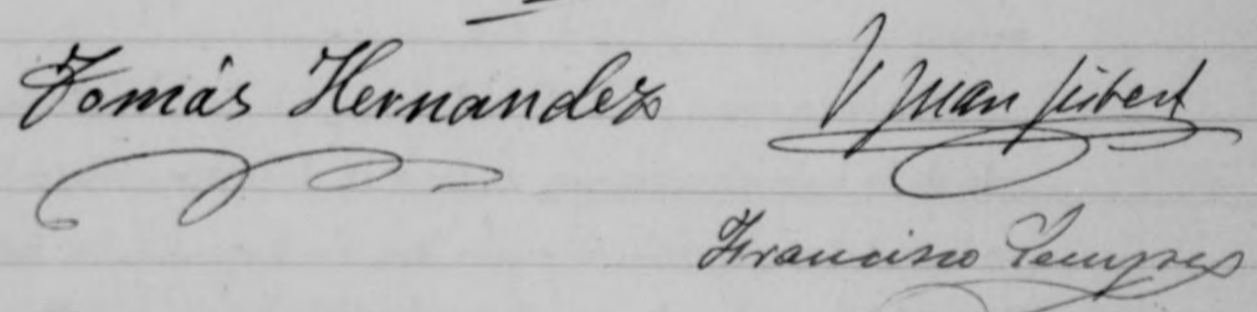 Tomás Hernandez
Juan Jisbert
Francisco Sempere